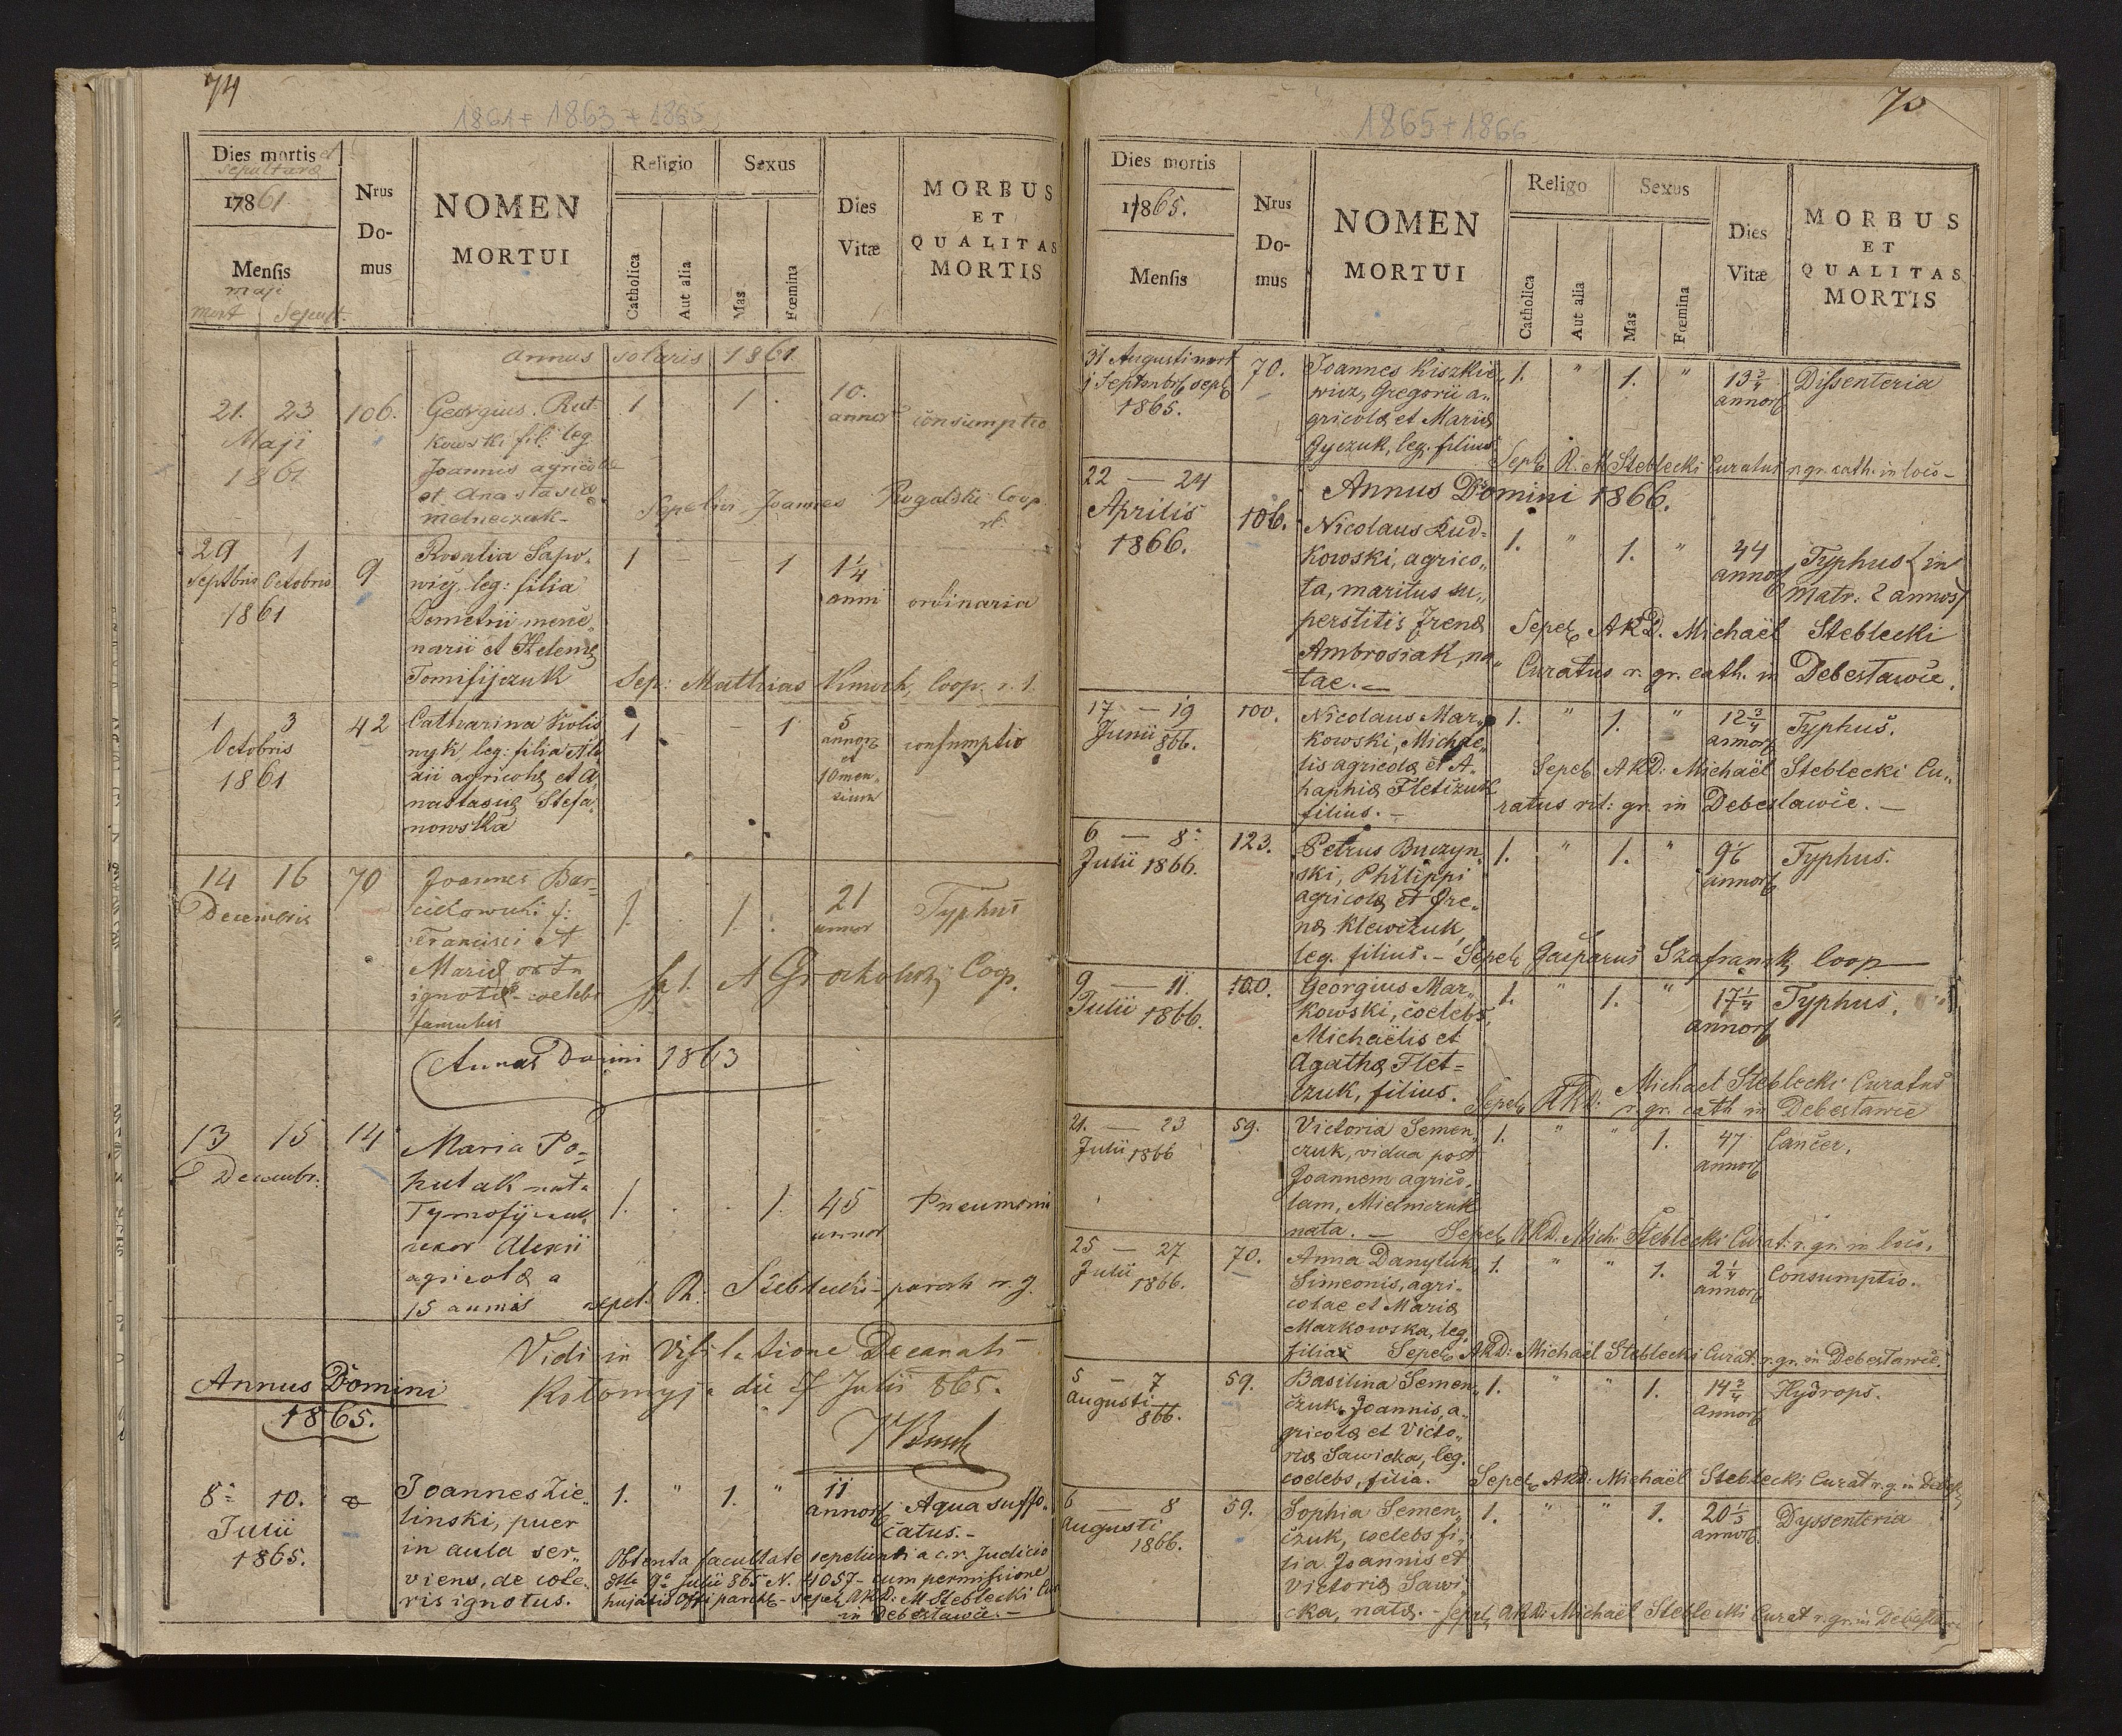 74
1861 + 1863 + 1865
Dies mortis et
sepulturae
17861
Mensis
maji
mort Sepult.
Nrus
Do-
mus
NOMEN
MORTUI
Religio
Catholica
Aut alia
Sexus
Mas
Fœmina
Dies
Vitæ
MORBUS
ET
QUALITAS
MORTIS
annus solaris 1861
21. 23
Maji
1861
106.
Georgius Rut
kowski fil: leg
Joannis agricolæ
et Anastasiæ
Melneczuk-
1 1.
10.
annor
consumptio
Sepelivi Joannes Rogalski Coop
29 1
Septbris Octobris
1861
9
Rosalia Sapo-
wicz leg: filia
Demetrii merce-
narii et Helenæ
Tomifijczuk
1 - - 1
1 1/4
anni
ordinaria
Sep: Mathias Coop. r. l.
1 3
Octobris
1861
42
Catharina Kolis
nyk leg: filia Ale
xii agricolæ et A
nastasiæ Stefa-
nowska
1 - - 1
5
annor
et
10 men-
sium
consumptio
14 16
Decembris
70
Joannes Bar-
f:
Francisci et
Mariæ ortu
ignotæ - coelebs
famulus
1. . 1. .
21
annor
Typhus
A Grocholski Coop.
Annus Domini 1863
13 15
Decembr.
14
Maria Po-
putak nata
Tymofijczuk
uxor Alexii
agricolæ a
15 annis
1. . . 1.
45
annor
Pneumonia
sepel. R: Steblecki - paroch r. g.
Vidi in Visitatione Decanali
Kolomyja die 7 Julii 865.
Annus Domini
1865.
8: 10.
Julii
1865.
Joannes Zie-
linski, puer
in aula ser-
viens, de cete-
ris ignotus.
1. " 1. "
11
annor
Aqua suffo-
catus.-
Obtenta facultate sepeliendi a c.r. Judicio
dtto 9a Julii 865 N. 4057 - cum permissione
hujatis Offi paroch - sepel ARD: M Steblecki Cur
in Debeslawce.-
70
1865 + 1866
Dies mortis
17865.
Mensis
Nrus
Do-
mus
NOMEN
MORTUI
Religo
Catholica
Aut alia
Sexus
Mas
Fœmina
Dies
Vitæ
MORBUS
ET
QUALITAS
MORTIS
31 Augusti mort
1 Septembr sepl
1865.
70.
Joannes Kiszkie-
wicz, Gregorii a-
gricolæ et Mariæ
Gyczuk, leg. filius
1. " 1. "
13 3/4
annor
Dissenteria
Sepel R. M Steblecki Curatus r. gr. cath. in loco -
Annus Domini 1866.
22 — 24
Aprilis
1866.
106.
Nicolaus Rud-
kowski, agrico-
la, maritus su-
perstitis Irenæ
Ambrosiak, na-
tae.-
1. " 1. "
44
annor
Typhus (in
matr: 2 annos)
Sepel ARD. Michaël Steblecki
Curatus r. gr. cath. in Debeslawce.
17 — 19
Junii 866.
100.
Nicolaus Mar-
kowski, Michae-
lis agricolæ et A-
haphiæ Fletczuk
filius.-
1. " 1. "
12 3/4
annor
Typhus.
Sepel ARD: Michaël Steblecki Cu-
ratus rit: gr. in Debeslawce.-
6 — 8:
Julii 1866.
123.
Petrus Buczyn-
ski, Philippi
agricolæ et Ire-
næ Klewczuk,
leg. filius.-
1. " 1. "
9 1/6
annor
Typhus.
Sepel Gasparus Szafransk, Coop
9 — 11.
Julii 1866.
100.
Georgius Mar-
kowski, coelebs,
Michaëlis et
Agathæ Flet=
czuk, filius.
1. " 1. "
17 1/4
annor
Typhus.
Sepel ARD: Michael Steblecki Curatus
r. gr. cath in Debeslawce
21. — 23
Julii 1866
59.
Victoria Semen-
czuk, vidua post
Joannem agrico-
lam, Mielniczuk
nata.-
1. " " 1.
47
annor
Cancer.
Sepel ARD. Mich: Steblecki Curat: r. gr. in loco.
25 — 27
Julii
1866.
70.
Anna Danyluk,
Simeonis, agri-
colae et Mariæ
Markowska, leg.
filia
1. " " 1.
2 1/4
annor
Consumptio.
Sepel ARD: Michaël Steblecki Curat. r. gr. in Debeslawce.
5 — 7
Augusti
866.
59.
Basilina Semen-
czuk, Joannis, a-
gricolæ et Victo-
riæ Sawicka, leg.
coelebs, filia.
1. " " 1.
14 3/4
annor
Hydrops.
Sepel ARD: Michaël Steblecki Curat r. g. in Debesl
6 — 8
Augusti
1866.
59.
Sophia Semen-
czuk, coelebs fi-
lia Joannis et
Victoriæ Sawi-
cka, natæ.-
1. " " 1.
20 1/3
annor
Dyssenteria
Sepel, ARD: Michaël Steblecki Curat r. gr. in Debeslaw